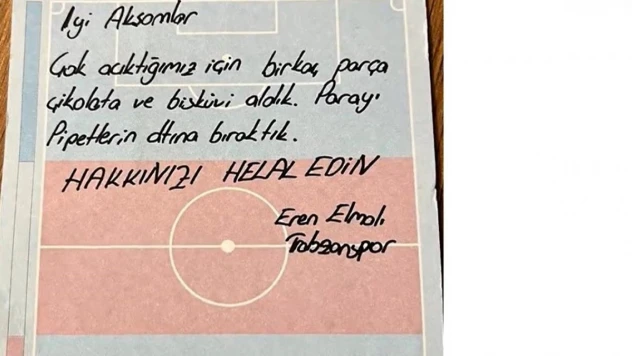 İyi Akşamlar
Çok acıktığımız için birkaç parça
çikolata ve bisküvi aldık. Parayı
Pipetlerin altına bıraktık.
HAKKINIZI HELAL EDİN
Eren Elmalı
Trabzonspor